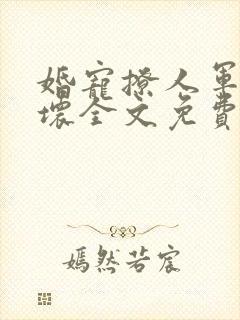 婚寵撩人軍
壞全文免費
嫣然若宸